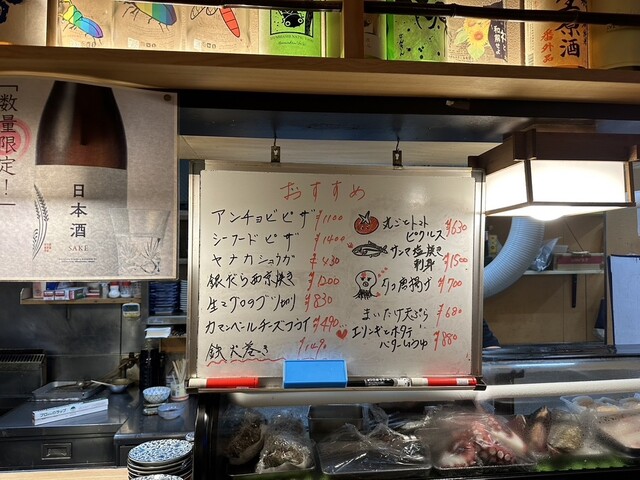 「数量限定!
日本酒
SAKE
原酒
番外品
おすすめ
アンチョビピザ ¥1100
シーフードピザ ¥1400
ヤナカショウガ ¥430
銀だら西京焼き ¥1200
生マグロのブツ切り ¥830
カマンベールチーズフライ ¥490
鉄火巻き ¥1490
丸ごとトマト
ピクルス ¥630
サンマ塩焼き
刺身 ¥1500
タコ唐揚げ ¥700
まいたけ天ぷら ¥680
エリンギとホタテ
バターしょうゆ ¥880